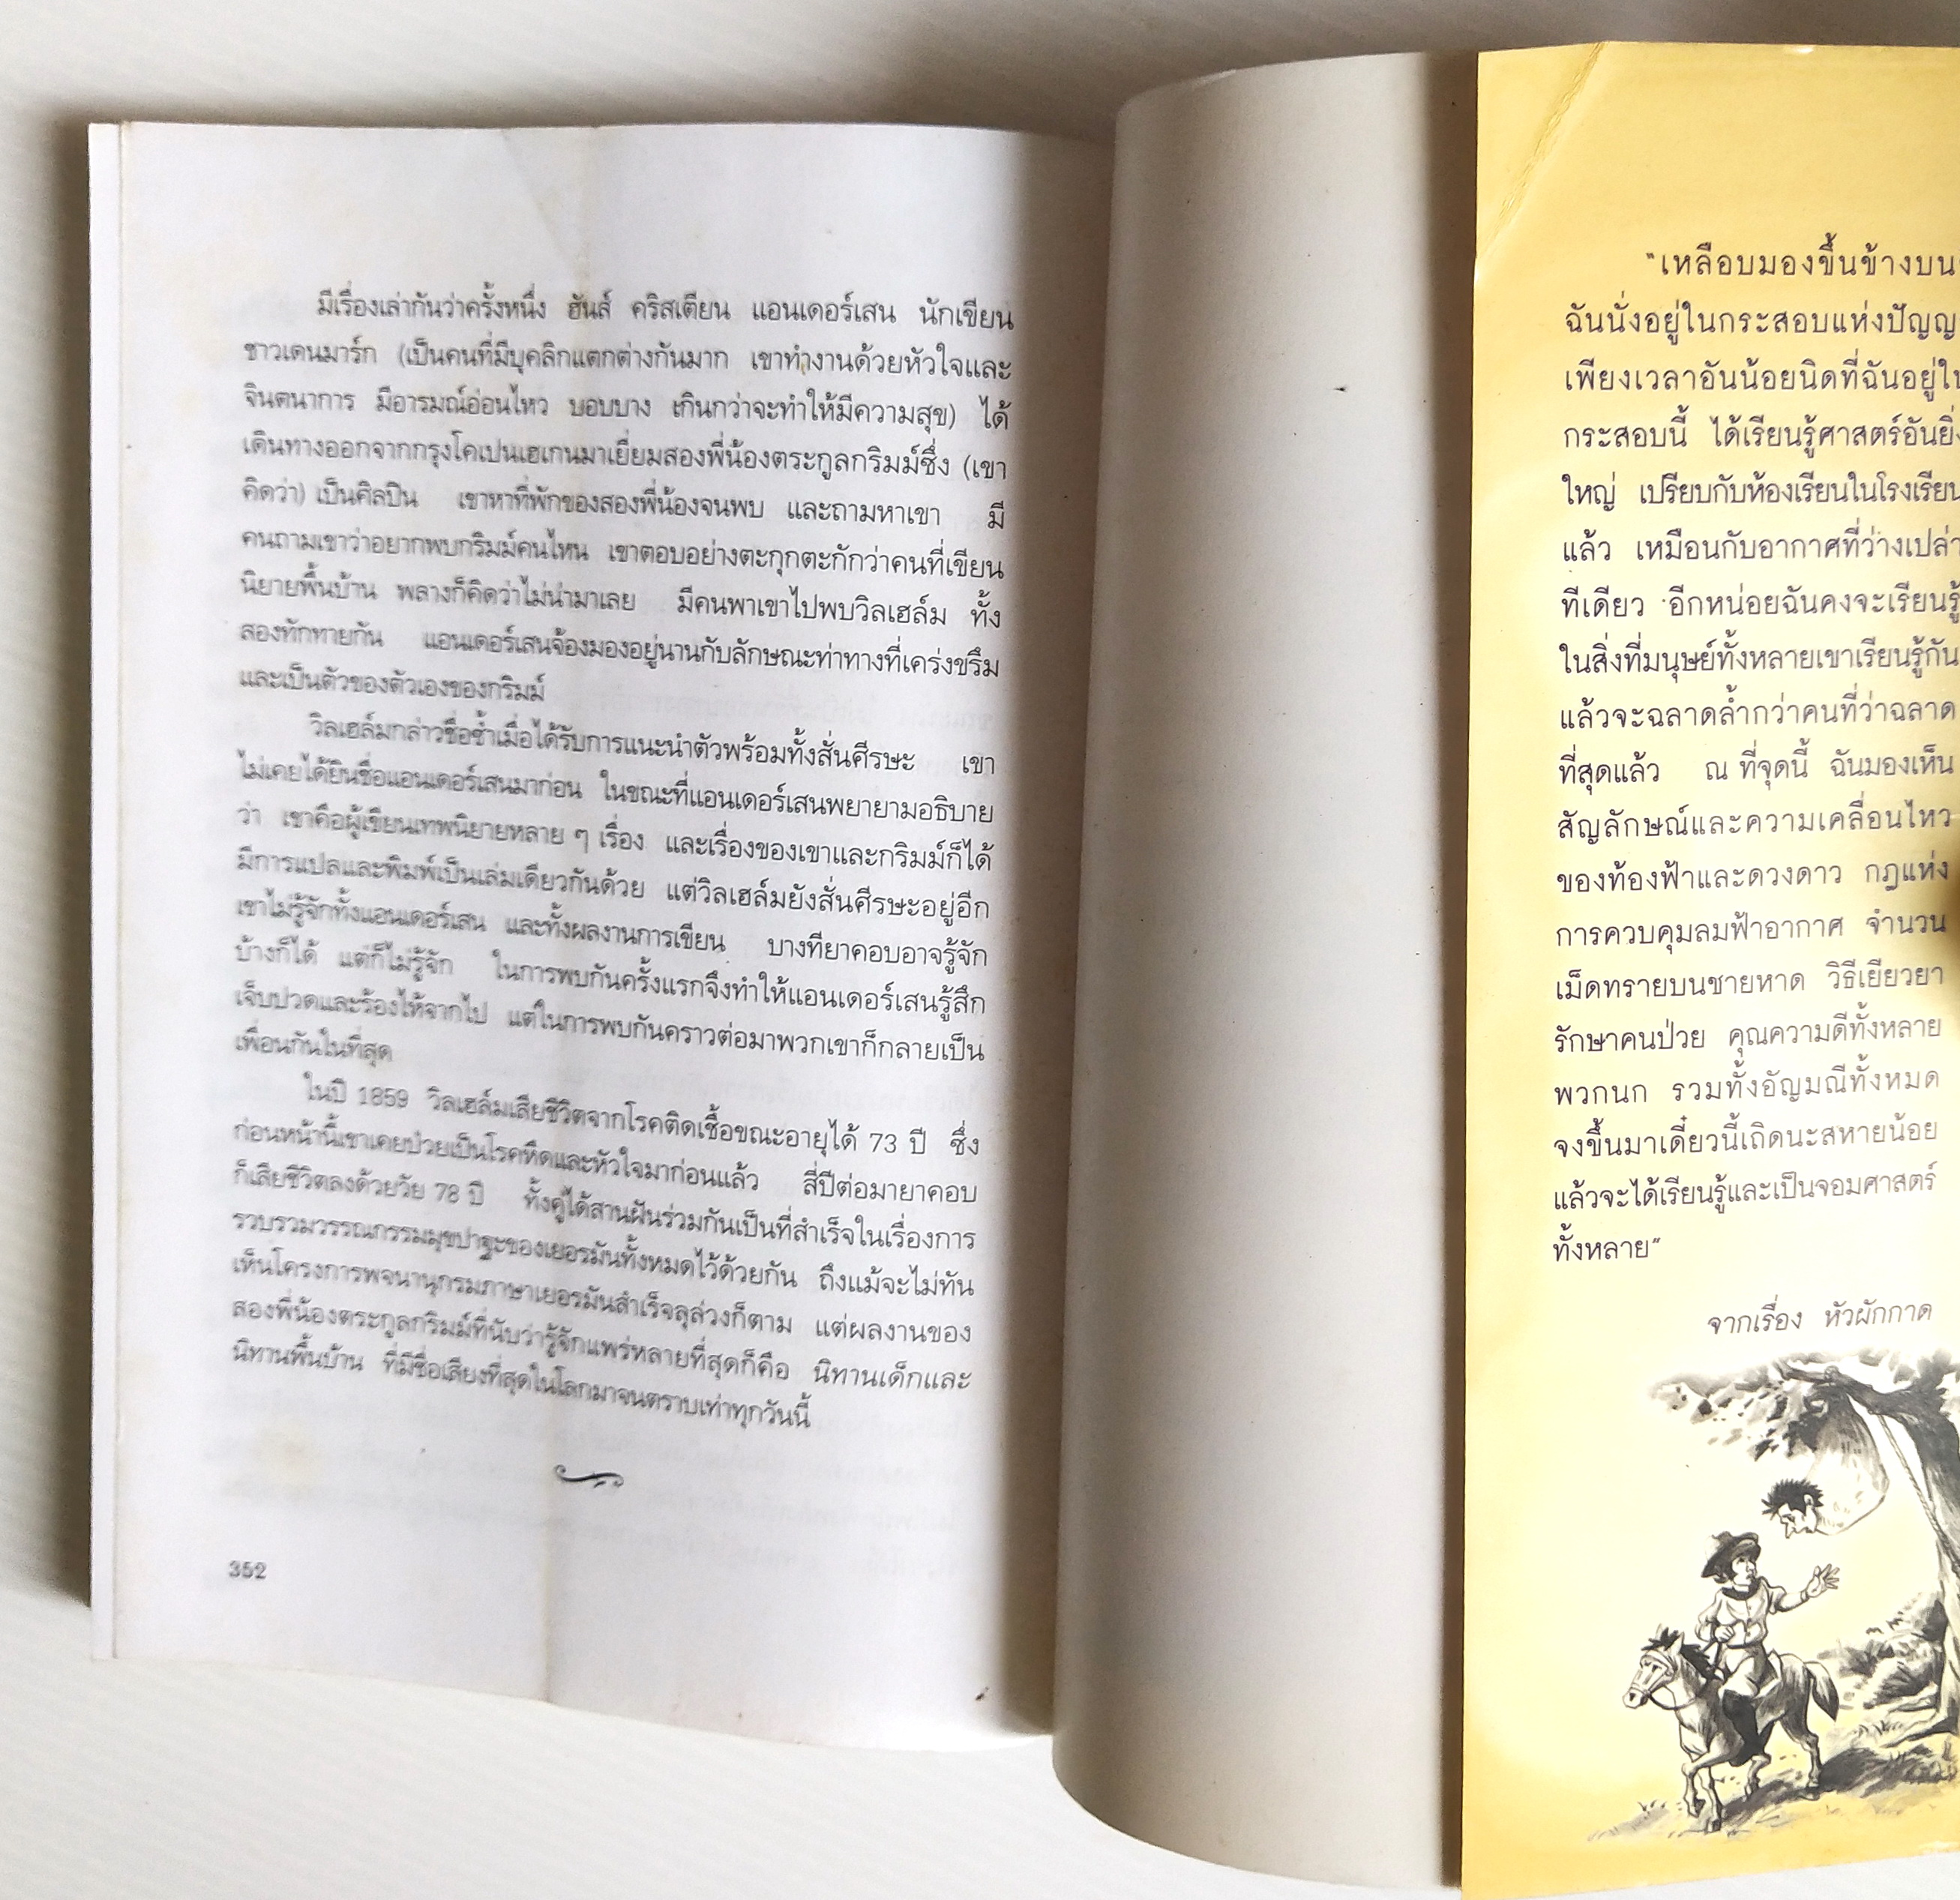 มีเรื่องเล่ากันว่าครั้งหนึ่ง ฮันส์ คริสเตียน แอนเดอร์เสน นักเขียน
ชาวเดนมาร์ก (เป็นคนที่มีบุคลิกแตกต่างกันมาก เขาทำงานด้วยหัวใจและ
จินตนาการ มีอารมณ์อ่อนไหว บอบบาง เกินกว่าจะทำให้มีความสุข) ได้
เดินทางออกจากกรุงโคเปนเฮเกนมาเยี่ยมสองพี่น้องตระกูลกริมม์ซึ่ง (เขา
คิดว่า) เป็นศิลปิน เขาหาที่พักของสองพี่น้องจนพบ และถามหาเขา มี
คนถามเขาว่าอยากพบกริมม์คนไหน เขาตอบอย่างตะกุกตะกักว่าคนที่เขียน
นิยายพื้นบ้าน พลางก็คิดว่าไม่น่ามาเลย มีคนพาเขาไปพบวิลเฮล์ม ทั้ง
สองทักทายกัน แอนเดอร์เสนจ้องมองอยู่นานกับลักษณะท่าทางที่เคร่งขรึม
และเป็นตัวของตัวเองของกริมม์
วิลเฮล์มกล่าวชื่อซ้ำเมื่อได้รับการแนะนำตัวพร้อมทั้งสั่นศีรษะ เขา
ไม่เคยได้ยินชื่อแอนเดอร์เสนมาก่อน ในขณะที่แอนเดอร์เสนพยายามอธิบาย
ว่า เขาคือผู้เขียนเทพนิยายหลาย ๆ เรื่อง และเรื่องของเขาและกริมม์ก็ได้
มีการแปลและพิมพ์เป็นเล่มเดียวกันด้วย แต่วิลเฮล์มยังสั่นศีรษะอยู่อีก
เขาไม่รู้จักทั้งแอนเดอร์เสน และทั้งผลงานการเขียน บางทียาคอบอาจรู้จัก
บ้างก็ได้ แต่ก็ไม่รู้จัก ในการพบกันครั้งแรกจึงทำให้แอนเดอร์เสนรู้สึก
เจ็บปวดและร้องไห้จากไป แต่ในการพบกันคราวต่อมาพวกเขาก็กลายเป็น
เพื่อนกันในที่สุด
ในปี 1859 วิลเฮล์มเสียชีวิตจากโรคติดเชื้อขณะอายุได้ 73 ปี ซึ่ง
ก่อนหน้านี้เขาเคยป่วยเป็นโรคหืดและหัวใจมาก่อนแล้ว สี่ปีต่อมายาคอบ
ก็เสียชีวิตลงด้วยวัย 78 ปี ทั้งคู่ได้สานฝันร่วมกันเป็นที่สำเร็จในเรื่องการ
รวบรวมวรรณกรรมมุขปาฐะของเยอรมันทั้งหมดไว้ด้วยกัน ถึงแม้จะไม่ทัน
เห็นโครงการพจนานุกรมภาษาเยอรมันสำเร็จลุล่วงก็ตาม แต่ผลงานของ
สองพี่น้องตระกูลกริมม์ที่นับว่ารู้จักแพร่หลายที่สุดก็คือ นิทานเด็กและ
นิทานพื้นบ้าน ที่มีชื่อเสียงที่สุดในโลกมาจนตราบเท่าทุกวันนี้
352
"เหลือบมองขึ้นข้างบน
ฉันนั่งอยู่ในกระสอบแห่ง
เพียงเวลาอันน้อยนิดที่ฉันอยู่
กระสอบนี้ ได้เรียนรู้ศาสตร์อัน
ใหญ่ เปรียบกับห้องเรียนในโรงเรียน
แล้ว เหมือนกับอากาศที่ว่าง
ทีเดียว อีกหน่อยฉันคงจะเรียนรู้
ในสิ่งที่มนุษย์ทั้งหลายเขาเรียนรู้กัน
แล้วจะฉลาดล้ำกว่าคนที่ว่าฉลาด
ที่สุดแล้ว ณ ที่จุดนี้ ฉันมองเห็น
สัญลักษณ์และความเคลื่อนไหว
ของท้องฟ้าและดวงดาว กฎแห่ง
การควบคุมลมฟ้าอากาศ จำนวน
เม็ดทรายบนชายหาด วิธีเยียวยา
รักษาคนป่วย คุณความดีทั้งหลาย
พวกนก รวมทั้งอัญมณีทั้งหมด
จงขึ้นมาเดี๋ยวนี้เถิดนะสหายน้อย
แล้วจะได้เรียนรู้และเป็นจอมศาสตร์
ทั้งหลาย"
จากเรื่อง หัวผักกาด